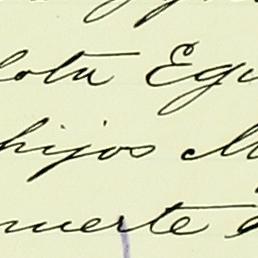 lota Egu
hijos M
muerte d